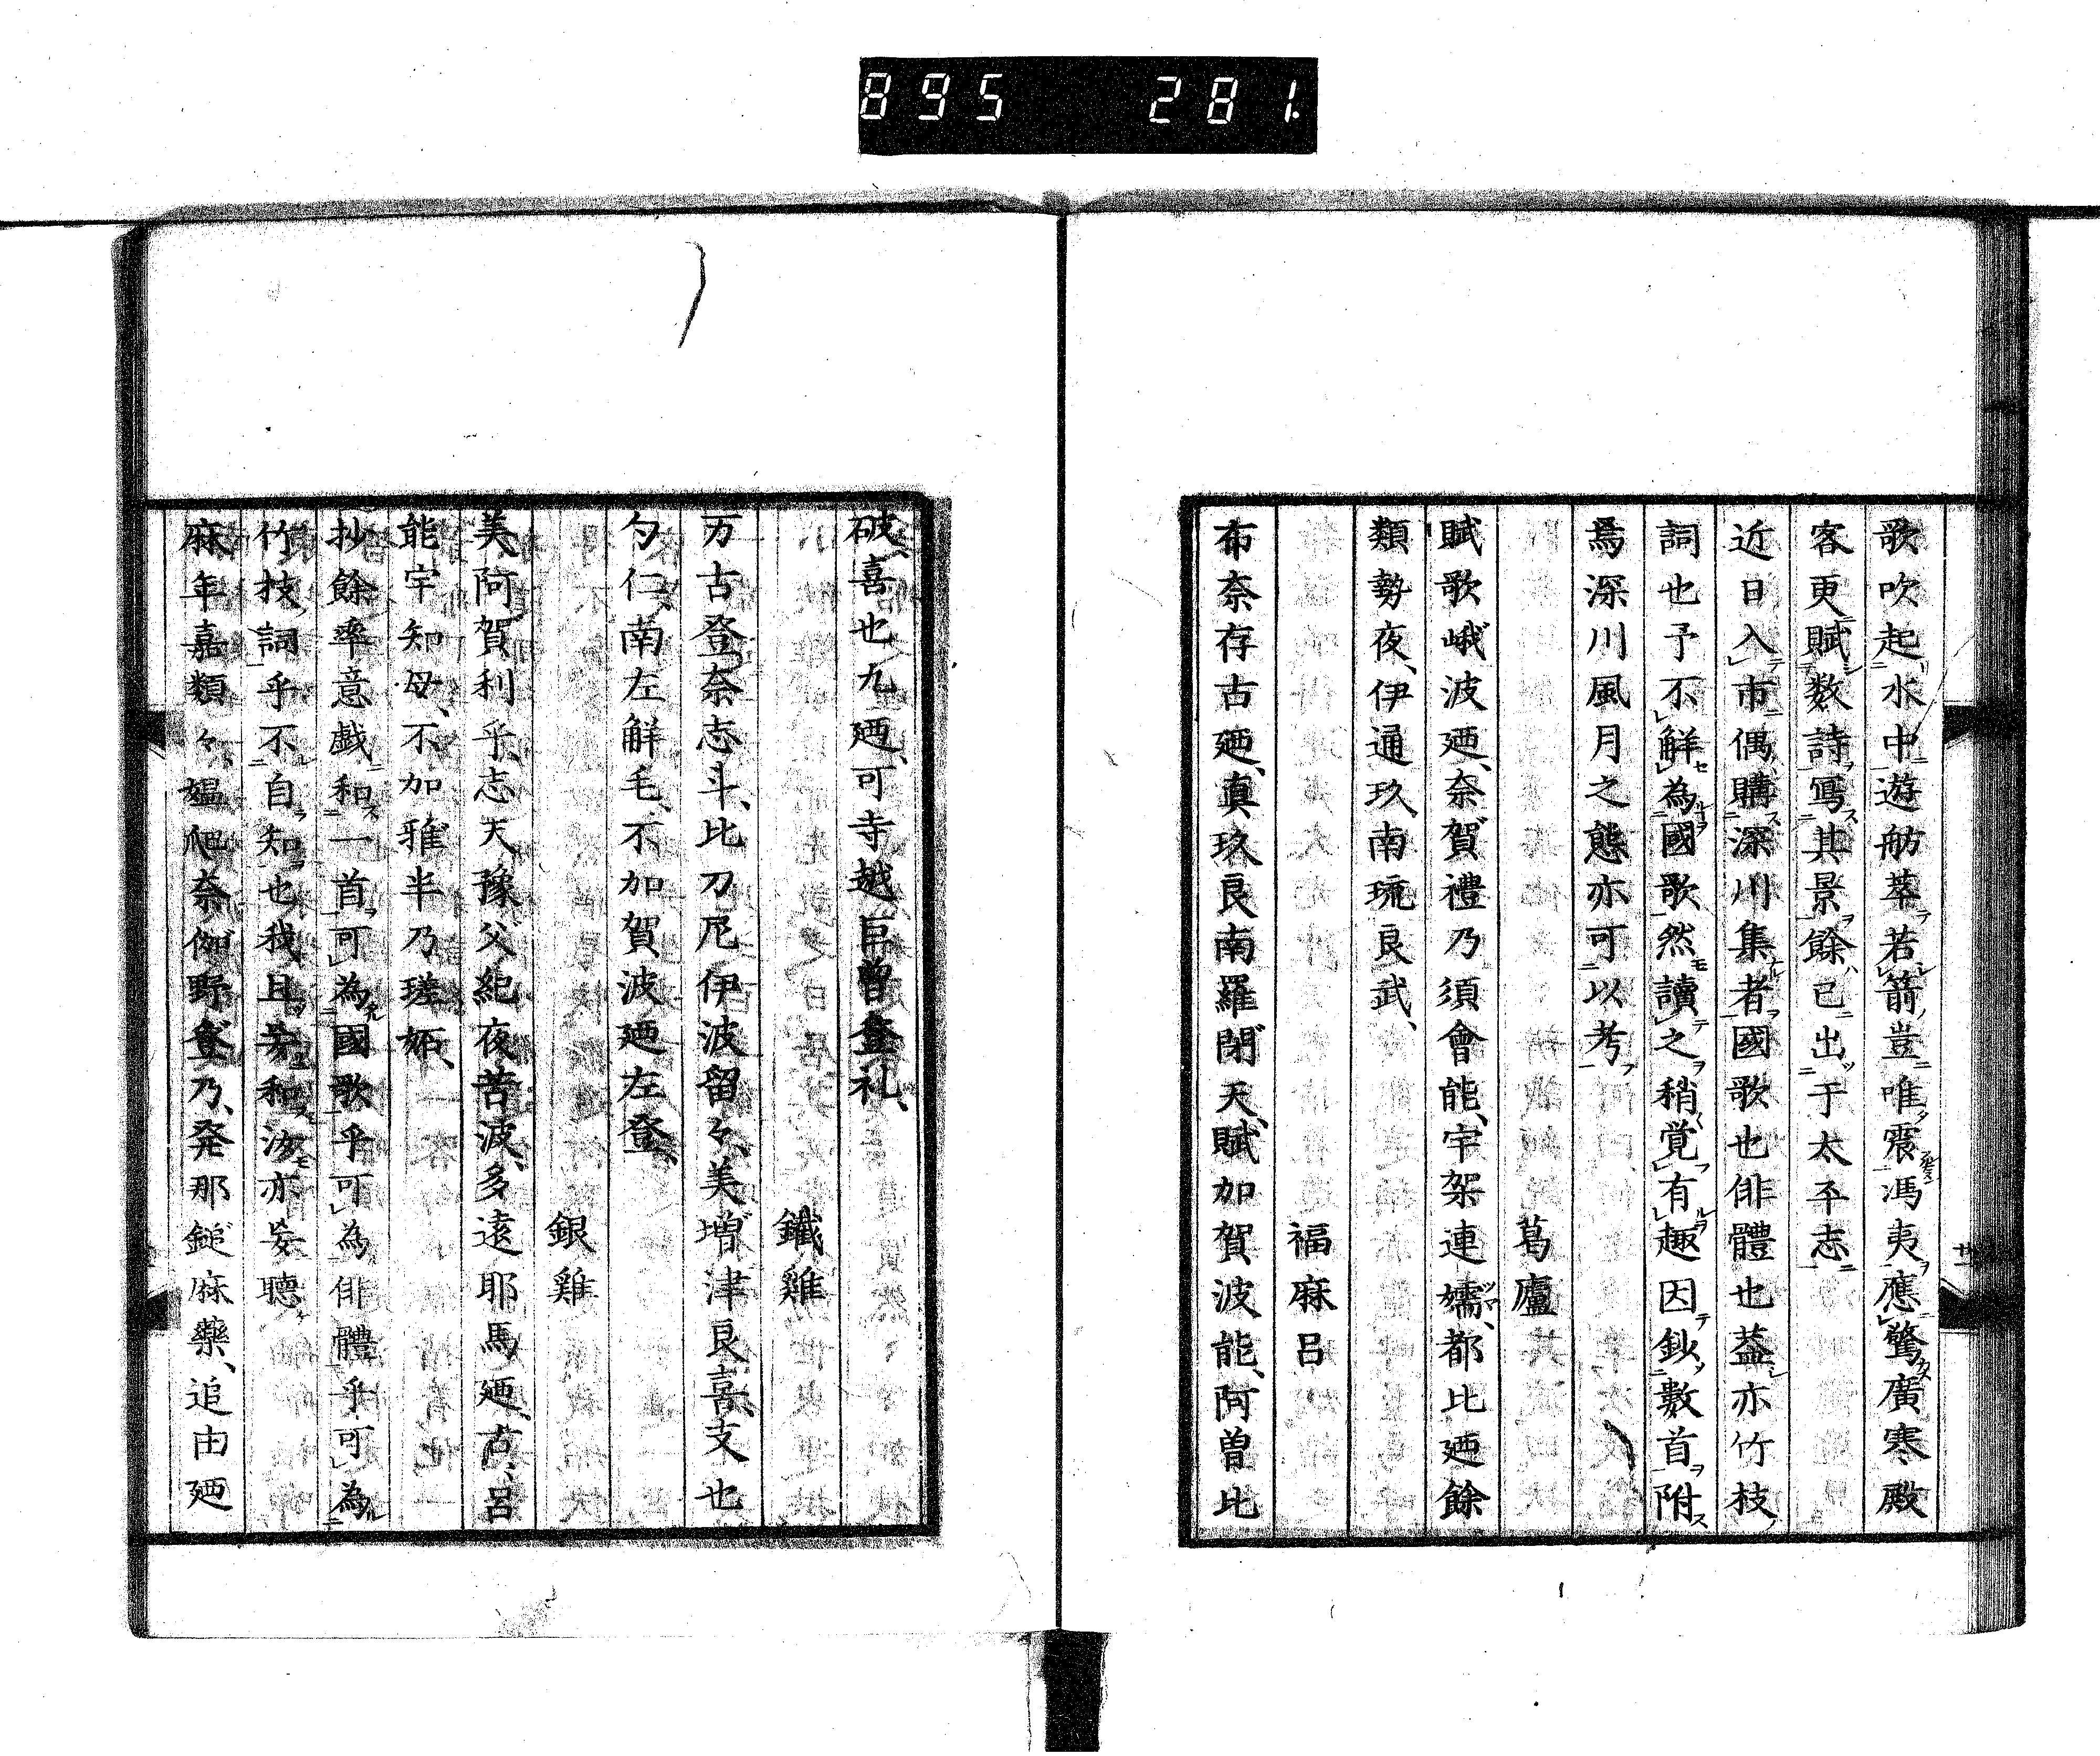 895 281
歌吹起水中遊舫萃若箭豈唯震馮夷應驚廣寒殿
客更賦数詩寫其景餘已出于太平志
近日入市偶購深川集者國歌也俳體也葢亦竹枝
詞也予不解為國歌然讀之稍覚有趣因鈔數首附
焉深川風月之態亦可以考
葛廬
賦歌峨波廼、奈賀禮乃須會能、宇架連嬬、都比廼餘
類勢夜、伊通玖、南琉良武、
福麻呂
布奈存古廼、真玖良南羅閉天、賦加賀波能、阿曽比
破、喜也九廼、可寺越巨曽登礼、
鐵雞
万古登奈志斗、比刀尼伊波留々、美増津良喜、支也
勺仁、南左觧毛、不加賀波廼左登、
銀雞
美、阿賀利乎、志天豫父紀夜苦波、多遠耶馬廼、古、呂
能宇知母、不加雅半乃瑳妬、
抄餘率意戯和一首可為國歌乎可為俳體乎可為
竹枝詞乎不自知也我且妄和汝亦妄聴
麻年嘉類々、媼爬奈伽野登乃、発那鎚麻藥、追由廼
廿一